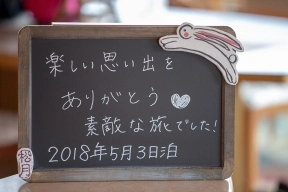 楽しい思い出を
ありがとう♡
素敵な旅でした!
2018年5月3日泊
松月